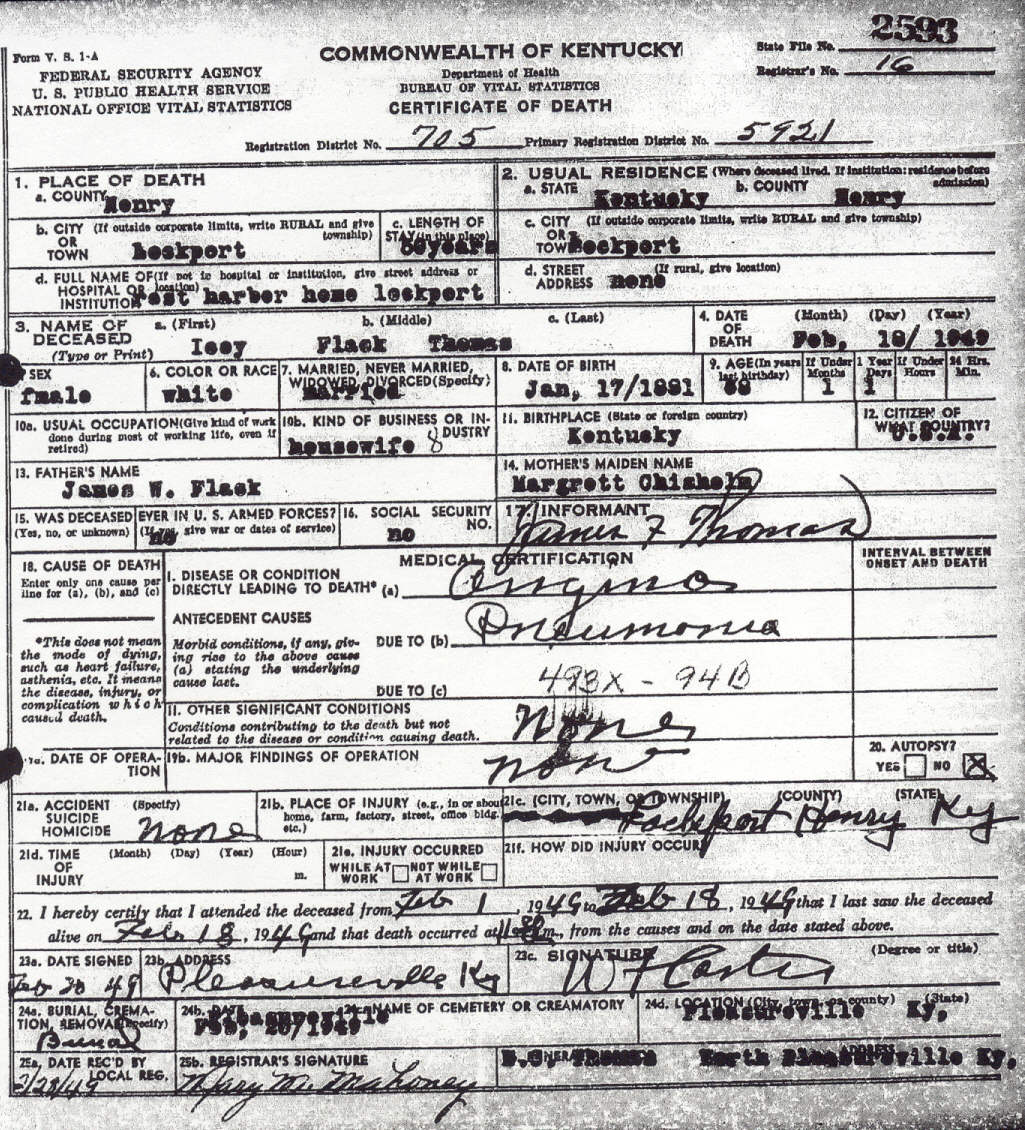 2593
Form V. S. 1-A
COMMONWEALTH OF KENTUCKY
State File No.
FEDERAL SECURITY AGENCY
Department of Health
Registrar's No. 16
U. S. PUBLIC HEALTH SERVICE
BUREAU OF VITAL STATISTICS
NATIONAL OFFICE VITAL STATISTICS
CERTIFICATE OF DEATH
Registration District No. 705 Primary Registration District No. 5921
1. PLACE OF DEATH
a. COUNTY Henry
2. USUAL RESIDENCE (Where deceased lived. If institution: residence before admission)
a. STATE Kentucky b. COUNTY Henry
b. CITY OR TOWN (If outside corporate limits, write RURAL and give township) Lockport
c. LENGTH OF STAY (in this place) years
c. CITY OR TOWN (If outside corporate limits, write RURAL and give township) Lockport
d. FULL NAME OF HOSPITAL OR INSTITUTION (If not in hospital or institution, give street address or location) harbor home lockport
d. STREET ADDRESS (If rural, give location) none
3. NAME OF DECEASED (Type or Print)
a. (First) b. (Middle) c. (Last)
Flack Thomas
4. DATE OF DEATH (Month) (Day) (Year)
Feb, 18/ 1949
SEX fmale
6. COLOR OR RACE white
7. MARRIED, NEVER MARRIED, WIDOWED, DIVORCED (Specify) married
8. DATE OF BIRTH Jan, 17/1881
9. AGE (In years last birthday) 68
If Under 1 Year Months 1 Days 1
If Under 24 Hrs. Hours Min.
10a. USUAL OCCUPATION (Give kind of work done during most of working life, even if retired)
10b. KIND OF BUSINESS OR INDUSTRY housewife 8
11. BIRTHPLACE (State or foreign country) Kentucky
12. CITIZEN OF WHAT COUNTRY? U.S.A.
13. FATHER'S NAME
James W. Flack
14. MOTHER'S MAIDEN NAME
Margrett Chisholm
15. WAS DECEASED EVER IN U. S. ARMED FORCES?
(Yes, no, or unknown) (If yes, give war or dates of service) no
16. SOCIAL SECURITY NO. no
17. INFORMANT
James F Thomas
18. CAUSE OF DEATH
Enter only one cause per line for (a), (b), and (c)
MEDICAL CERTIFICATION
INTERVAL BETWEEN ONSET AND DEATH
I. DISEASE OR CONDITION
DIRECTLY LEADING TO DEATH* (a) Angina
ANTECEDENT CAUSES
*This does not mean the mode of dying, such as heart failure, asthenia, etc. It means the disease, injury, or complication which caused death.
Morbid conditions, if any, giving rise to the above cause (a) stating the underlying cause last.
DUE TO (b) Pneumonia
493X - 94B
DUE TO (c)
II. OTHER SIGNIFICANT CONDITIONS
Conditions contributing to the death but not related to the disease or condition causing death.
None
DATE OF OPERATION
19b. MAJOR FINDINGS OF OPERATION
20. AUTOPSY?
YES NO X
21a. ACCIDENT SUICIDE HOMICIDE (Specify) none
21b. PLACE OF INJURY (e.g., in or about home, farm, factory, street, office bldg. etc.)
21c. (CITY, TOWN, OR TOWNSHIP) (COUNTY) (STATE)
Lockport Henry Ky
21d. TIME OF INJURY (Month) (Day) (Year) (Hour) m.
21e. INJURY OCCURRED
WHILE AT WORK NOT WHILE AT WORK
21f. HOW DID INJURY OCCUR?
22. I hereby certify that I attended the deceased from Feb 1, 1949 to Feb 18, 1949 that I last saw the deceased
alive on Feb 18, 1949 and that death occurred at m., from the causes and on the date stated above.
23a. DATE SIGNED Feb 20 49
23b. ADDRESS Pleasureville Ky
23c. SIGNATURE (Degree or title)
W F Carter
24a. BURIAL, CREMATION, REMOVAL (Specify) Burial
24b. DATE Feb, 20/1949
24c. NAME OF CEMETERY OR CREAMATORY
24d. LOCATION (City, town, or county) (State)
Pleasureville Ky,
25a. DATE REC'D BY LOCAL REG.
25b. REGISTRAR'S SIGNATURE
Mary M. Mahoney
ADDRESS
Thomas North Pleasureville Ky.